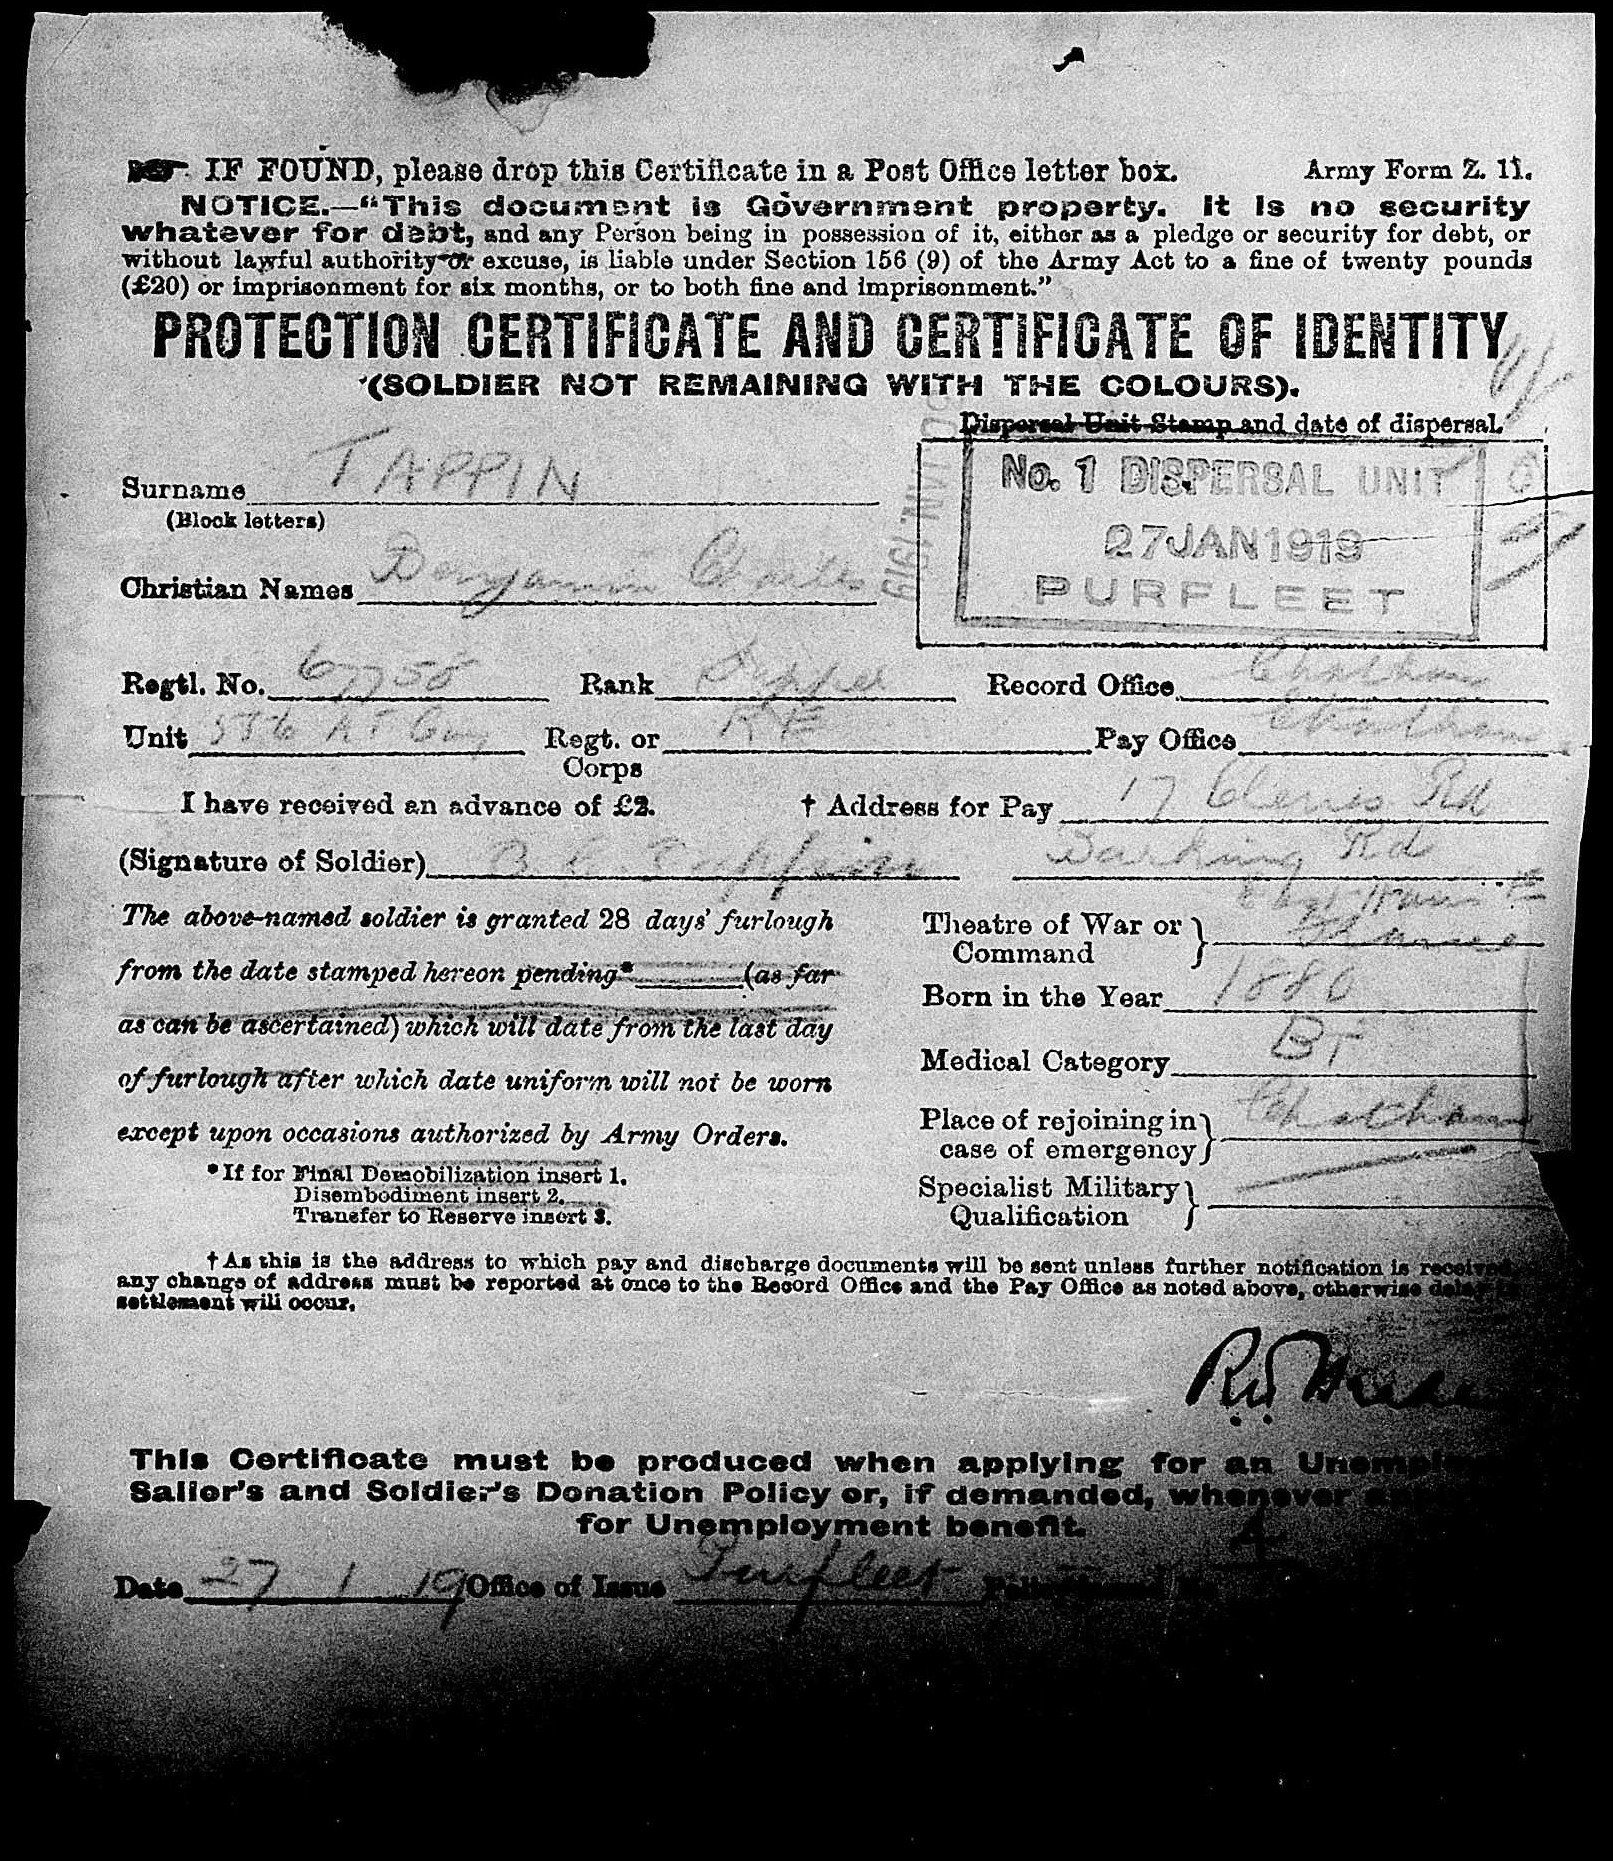 IF FOUND, please drop this Certificate in a Post Office letter box. Army Form Z. 11.
NOTICE.—“This document is Government property. It is no security
whatever for debt, and any Person being in possession of it, either as a pledge or security for debt, or
without lawful authority or excuse, is liable under Section 156 (9) of the Army Act to a fine of twenty pounds
(£20) or imprisonment for six months, or to both fine and imprisonment.”
PROTECTION CERTIFICATE AND CERTIFICATE OF IDENTITY
(SOLDIER NOT REMAINING WITH THE COLOURS).
Dispersal Unit Stamp and date of dispersal.
No. 1 DISPERSAL UNIT
27 JAN 1919
PURFLEET
JAN. 1919
Surname TAPPIN
(Block letters)
Christian Names Benjamin Charles
Regtl. No. 67758 Rank Sapper Record Office Chatham
Unit Regt. or RE Pay Office Chatham
Corps
I have received an advance of £2. † Address for Pay 17 Rd
(Signature of Soldier) B C Tappin Barking Rd
The above-named soldier is granted 28 days’ furlough
from the date stamped hereon pending* (as far
as can be ascertained) which will date from the last day
of furlough after which date uniform will not be worn
except upon occasions authorized by Army Orders.
*If for Final Demobilization insert 1.
Disembodiment insert 2.
Transfer to Reserve insert 3.
Theatre of War or France
Command
Born in the Year 1886
Medical Category B1
Place of rejoining in Chatham
case of emergency
Specialist Military
Qualification
† As this is the address to which pay and discharge documents will be sent unless further notification is received
any change of address must be reported at once to the Record Office and the Pay Office as noted above, otherwise delay in
settlement will occur.
This Certificate must be produced when applying for an
Sailor’s and Soldier’s Donation Policy or, if demanded, whenever
for Unemployment benefit.
Date 27 1 19 Office of Issue Purfleet